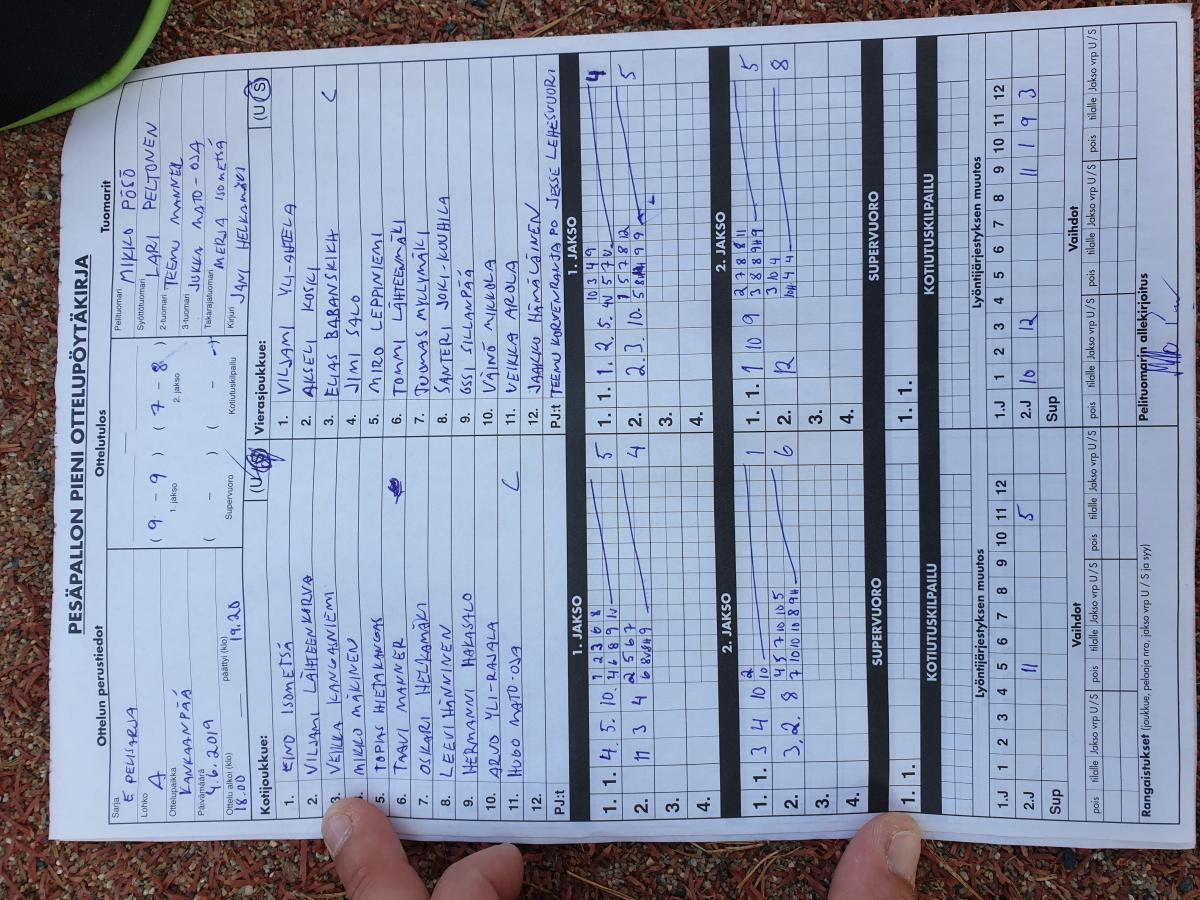 PESÄPALLON PIENI OTTELUPÖYTÄKIRJA
Ottelun perustiedot
Sarja E PELISARJA
Lohko A
Ottelupaikka KANKAANPÄÄ
Päivämäärä 4.6.2019
Ottelu alkoi (klo) 18.00 päättyi (klo) 19.20
Ottelutulos
( 9 - 9 ) ( 7 - 8 )
1. jakso 2. jakso
( - ) ( - )
Supervuoro Kotiutuskilpailu
Tuomarit
Pelituomari MIKKO PÖSÖ
Syöttötuomari LARI PELTONEN
2-tuomari TEEMU MANNER
3-tuomari JUKKA MATO-OJA
Takarajatuomari MERJA ISOMETSÄ
Kirjuri JANI HELKAMÄKI
Kotijoukkue: (U/S)
1. EINO ISOMETSÄ
2. VILJAMI LÄHTEENKORVA
3. VEIKKA KANGASNIEMI
4. MIKKO MÄKINEN
5. TOPIAS HIETAKANGAS
6. TAAVI MANNER
7. OSKARI HELKAMÄKI
8. LEEVI HÄNNINEN
9. HERMANNI HAKASALO
10. ARVO YLI-RAJALA
11. HUGO MATO-OJA C
12.
PJ:t
Vierasjoukkue: (U/S)
1. VILJAMI YLI-AHTELA
2. AKSELI KOSKI
3. ELIAS BABANSKICH C
4. JIMI SALO
5. MIRO LEPPINIEMI
6. TOMMI LÄHTEENMÄKI
7. TUOMAS MYLLYMÄKI
8. SANTERI JOKI-KOUHILA
9. OSSI SILLANPÄÄ
10. VÄINÖ MIKKOLA
11. VEIKKA AROLA
12. JAAKKO HÄMÄLÄINEN
PJ:t TEEMU KORVENRANTA PO JESSE LEHESVUORI
1. JAKSO
1. 1. 4. 5. 10. 5
2. 11 3 4 4
3.
4.
1. JAKSO
1. 1. 1. 2. 5. 4
2. 2. 3. 10. 5
3.
4.
2. JAKSO
1. 1. 3 4 10 1
2. 3. 2. 8 6
3.
4.
2. JAKSO
1. 1. 1 10 9 5
2. 12 8
3.
4.
SUPERVUORO
1. 1.
SUPERVUORO
1. 1.
KOTIUTUSKILPAILU
KOTIUTUSKILPAILU
Lyöntijärjestyksen muutos
1.J 1 2 3 4 5 6 7 8 9 10 11 12
2.J 11 5
Sup
Lyöntijärjestyksen muutos
1.J 1 2 3 4 5 6 7 8 9 10 11 12
2.J 10 12 11 1 9 3
Sup
Vaihdot
pois tilalle Jakso vrp U/S pois tilalle Jakso vrp U/S pois tilalle Jakso vrp U/S
Vaihdot
pois tilalle Jakso vrp U/S pois tilalle Jakso vrp U/S pois tilalle Jakso vrp U/S
Rangaistukset (joukkue, pelaaja nro, jakso vrp U / S ja syy)
Pelituomarin allekirjoitus